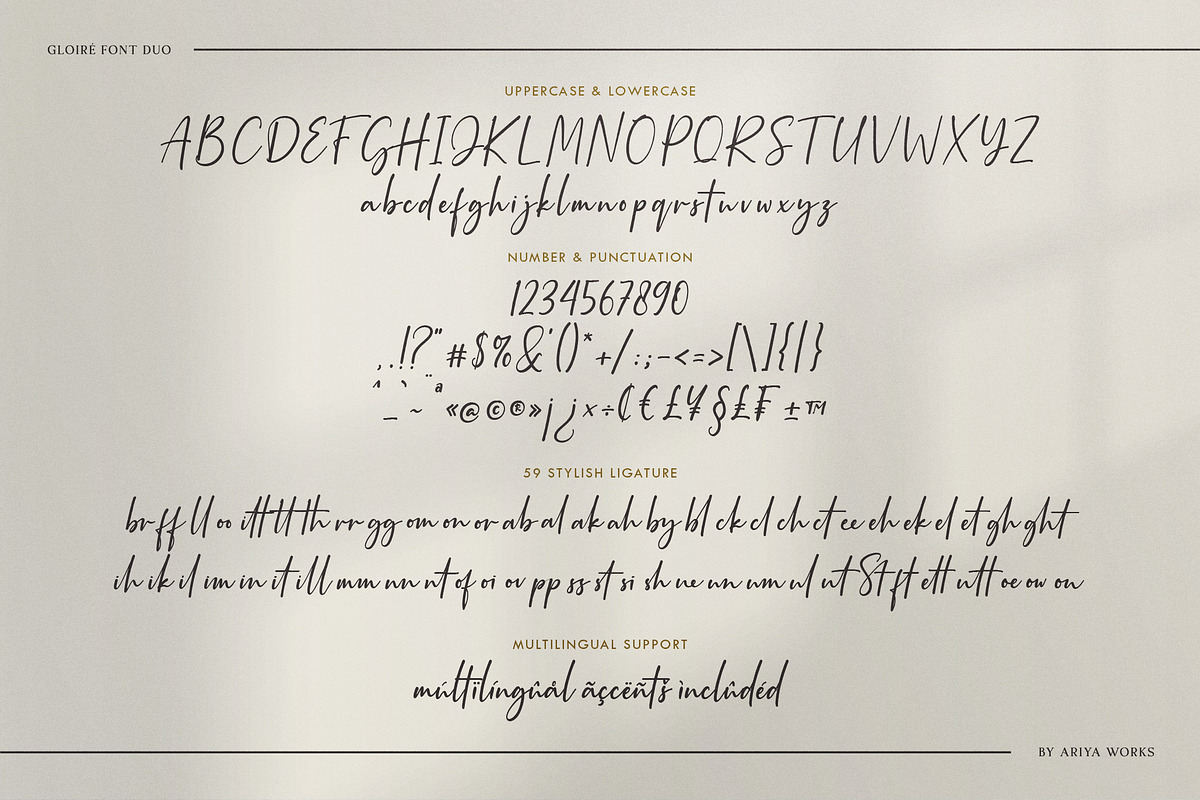 GLOIRÉ FONT DUO
UPPERCASE & LOWERCASE
ABCDEFGHIJKLMNOPQRSTUVWXYZ
abcdefghijklmnopqrstuvwxyz
NUMBER & PUNCTUATION
1234567890
,.!?"#$%&'()*+/:;-<=>[\]{|}
^ ` ¨ ª
_ ~ «@©®»¡¿×÷₵€£¥§₤₣±™
59 STYLISH LIGATURE
br ff ll oo itt tt th rr gg om on or ab al ak ah by bl ck cl ch ct ee eh ek el et gh ght
ih ik il im in it ill mm nn nt of oi ov pp ss st si sh ue un um ul ut St ft ett utt oe ow ou
MULTILINGUAL SUPPORT
múltïlíngûål ãşcëñtš ìnclûdéd
BY ARIYA WORKS